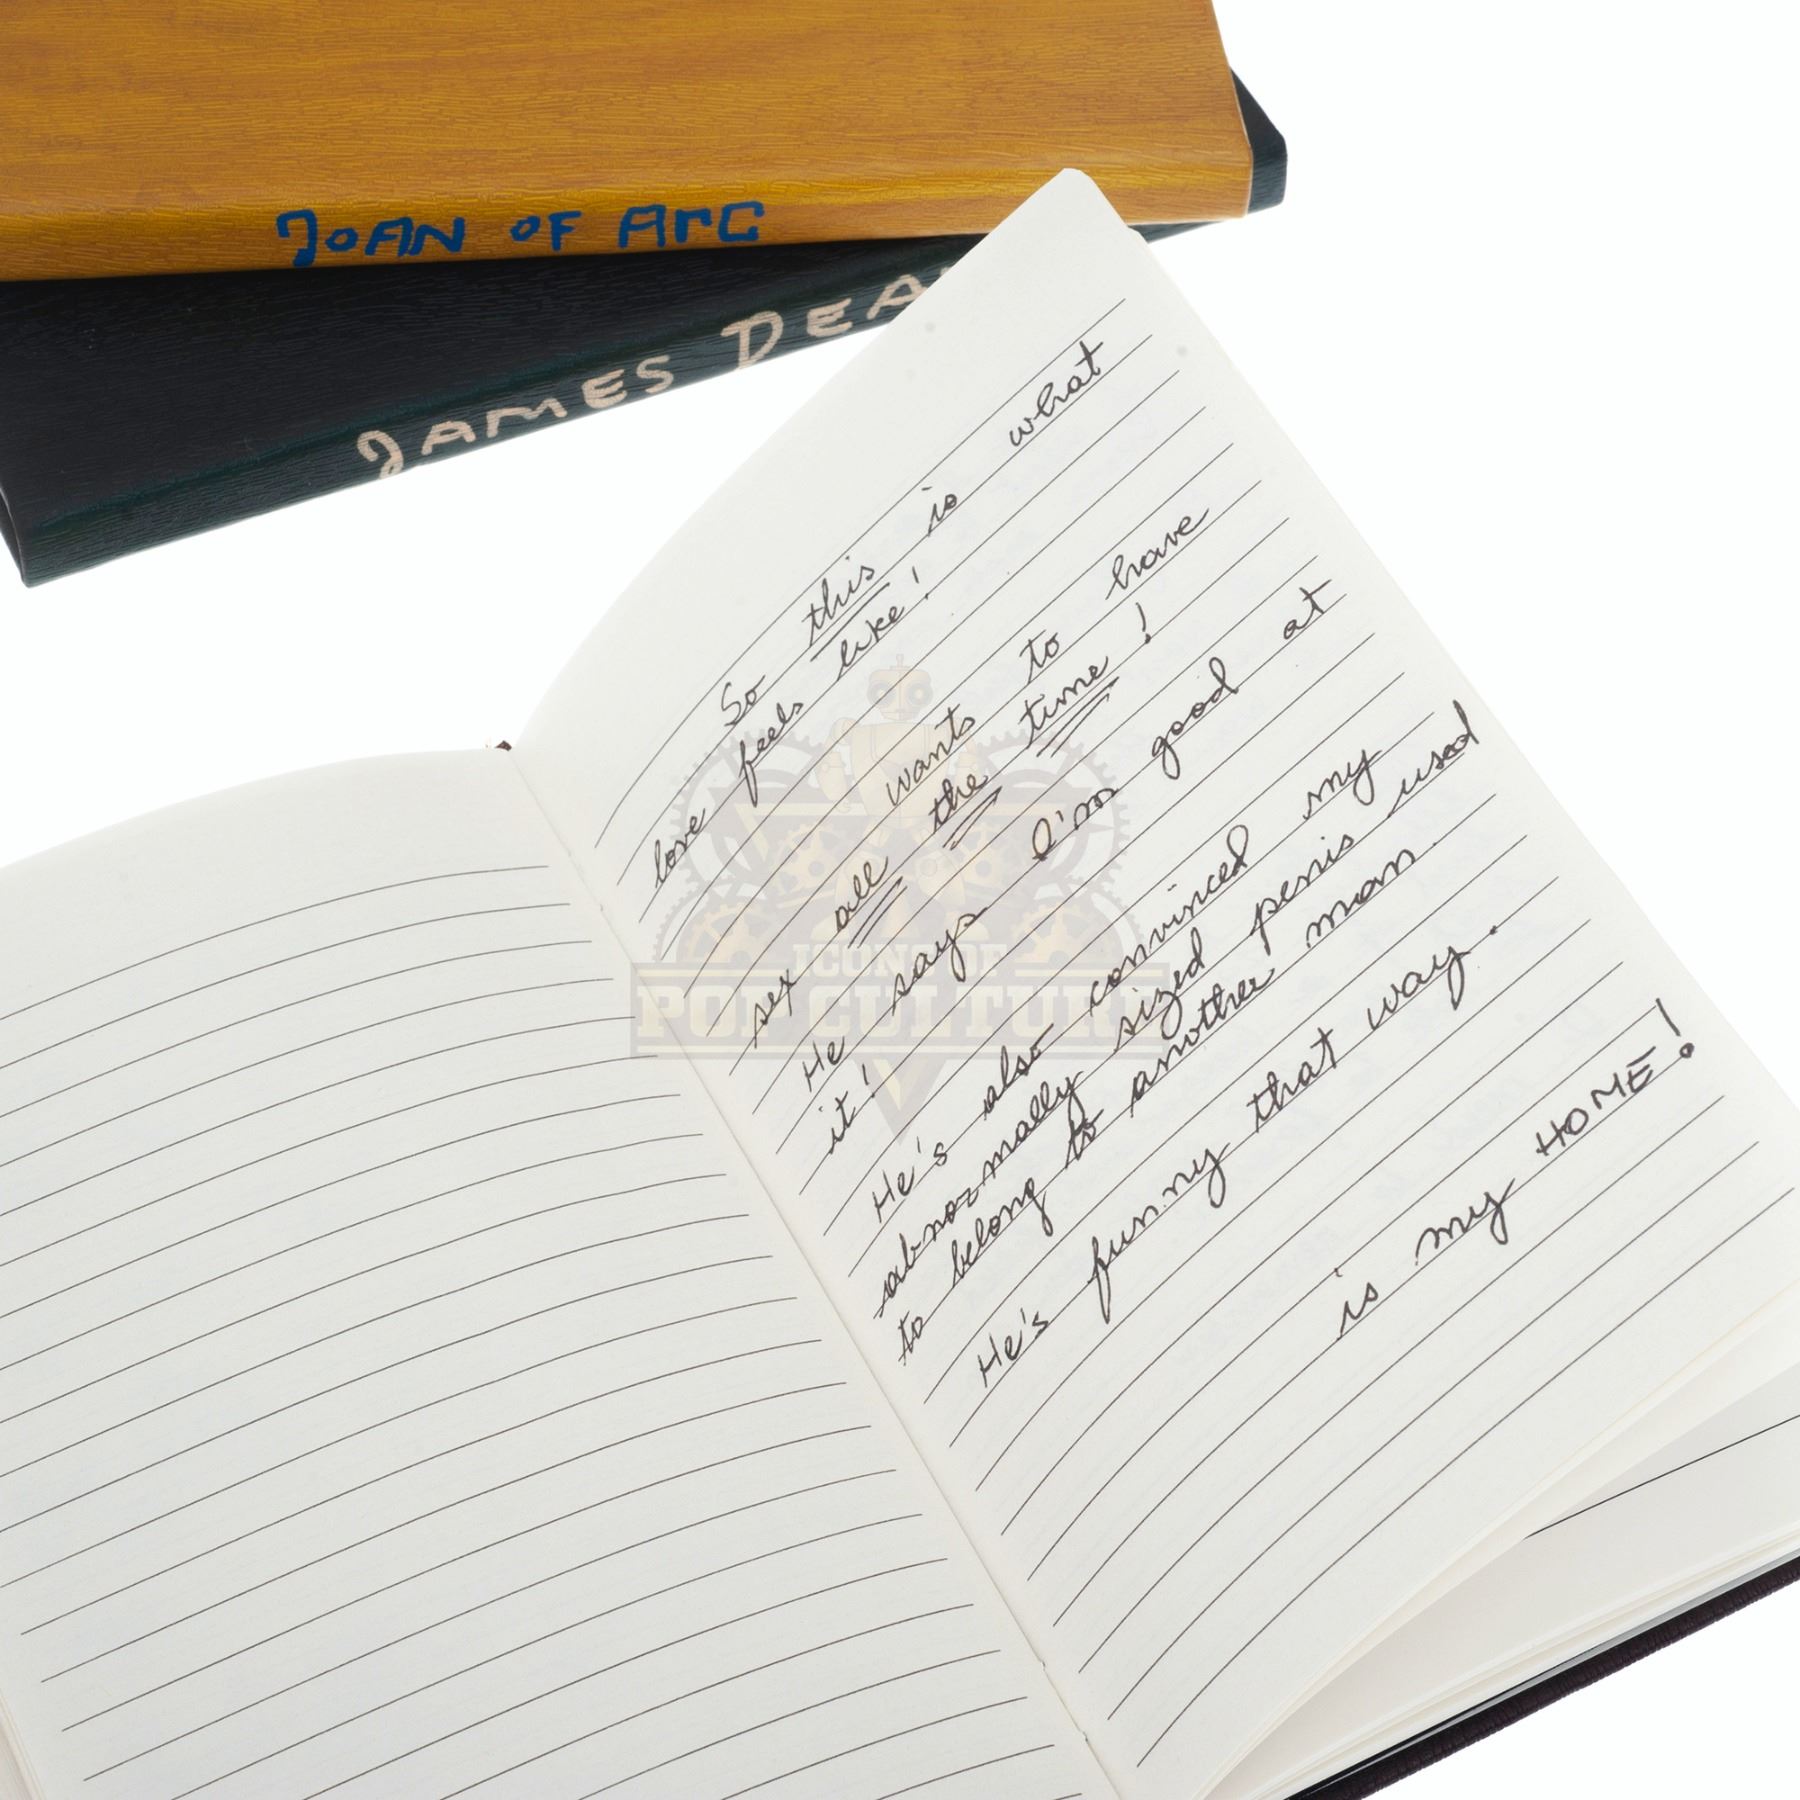 JOAN OF Arc
JAMES DEA
So this is what
love feels like!
wants to have
sex all the time!
He says I'm good at
it!
He's also convinced my
abnormally sized penis used
to belong to another man.
He's funny that way.
is my HOME!
ICONS OF
POP CULTURE